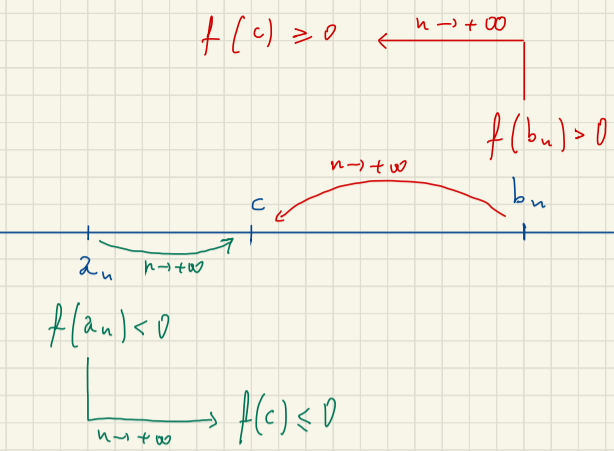 f(c) ≥ 0
n→+∞
f(bₙ)>0
n→+∞
c
bₙ
aₙ
n→+∞
f(aₙ)<0
n→+∞
f(c)≤0